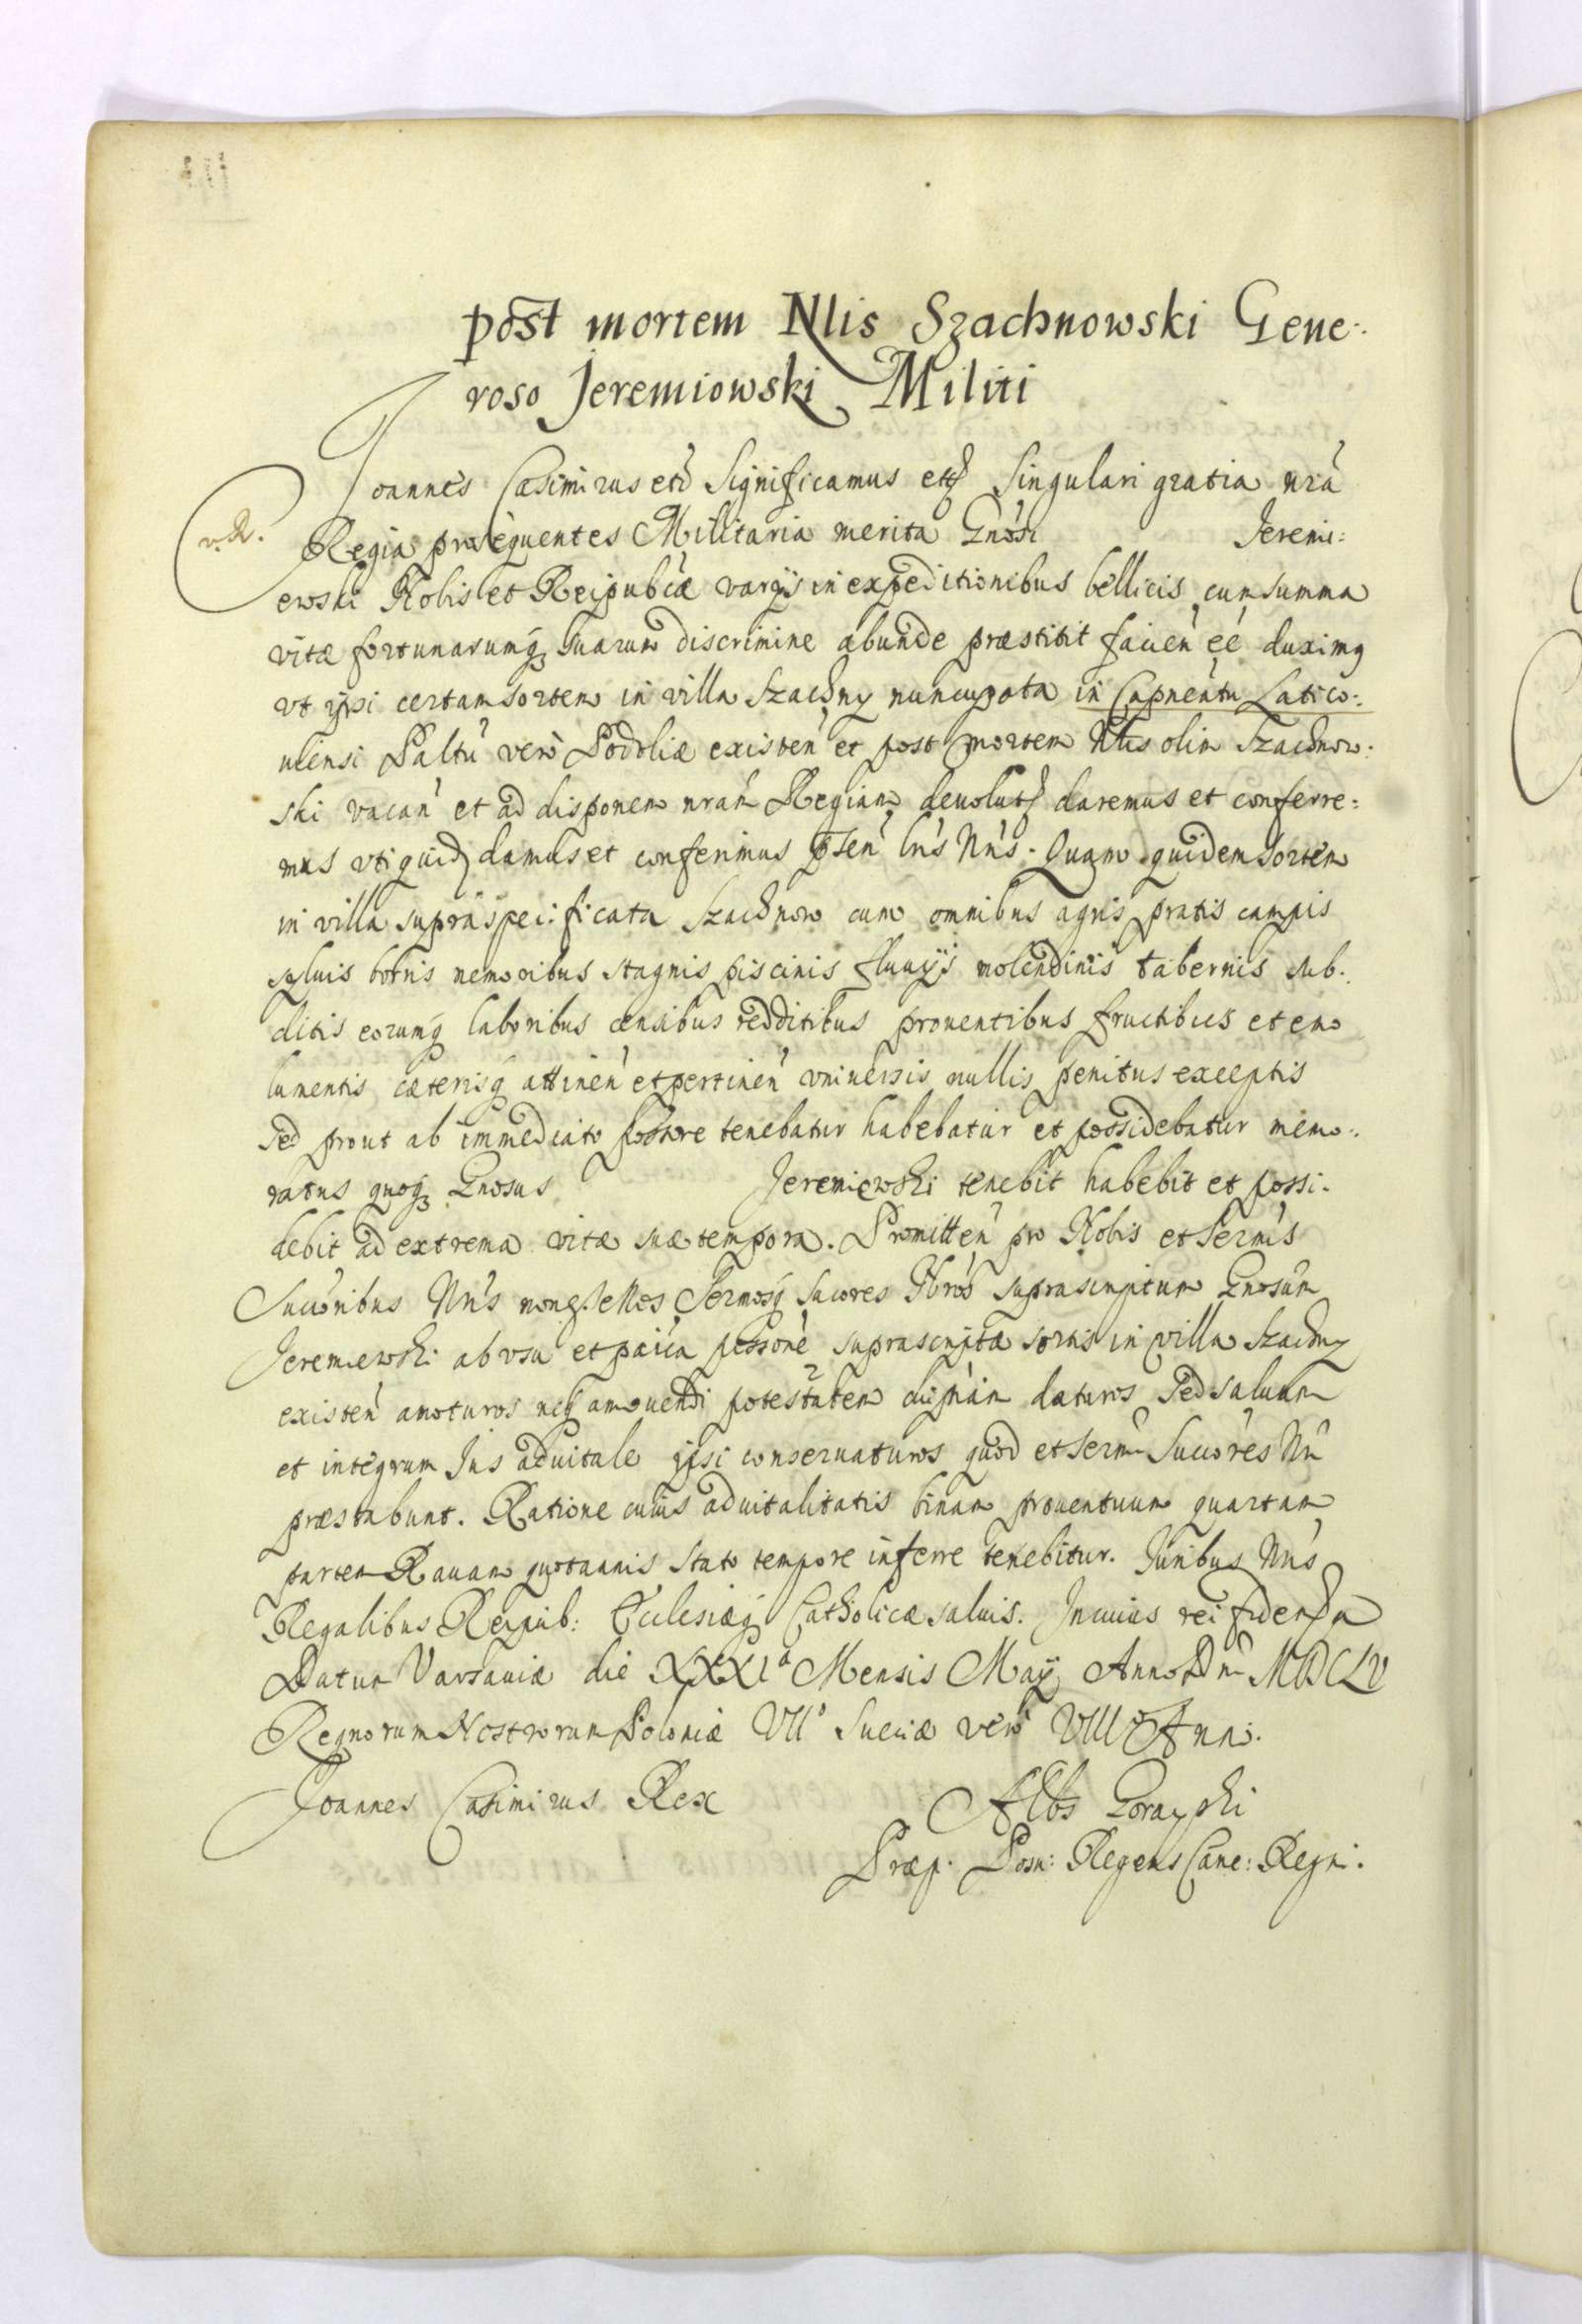 post mortem Nlis Szachnowski Gene:
roso Jeremiowski Militi
Joannes Casimirus etc Significamus etc Singulari gratia nra
v.R. Regia prosequentes Militaria merita Gnosi Jeremi:
ewski Nobis et Reipubcæ varijs in expeditionibus bellicis cum summa
vitæ fortunarumq suarum discrimine abunde præstitit facien eé duximq
vt ipsi certam sortem in villa Szachny nuncupata in Capneatu Latico:
uiensi Paltu vero Podoliæ existen et post mortem Nlis olim Szachnow:
ski vacan et ad disponem nram Regiam deuolut daremus et conferre:
mus vti quidem damus et conferimus pnsen Lris Nris. Quam quidem sortem
in villa supraspecificata Szachnow cum omnibus agris pratis campis
syluis borris nemoribus stagnis piscinis fluuijs molendinis tabernis sub:
ditis eorumq laboribus censibus redditibus prouentibus fructibus et emo
lumentis cæterisq attinen et pertinen vniuersis nullis penitus exceptis
sed prout ab immediato possore tenebatur habebatur et possidebatur memo:
ratus quoq Gnosus Jeremiewski tenebit habebit et possi:
debit ad extrema vitæ suæ tempora. Promitten pro Nobis et Sermis
Succoribus Nris nonq se Nos Sermosq Sucores Nros suprascriptum Gnosum
Jeremiewski ab vsu et paica possone suprascriptæ sortis in villa Szachny
existen amoturos neq amouendi potestatem cuipiam daturos Sed saluum
et integrum Jus aduitale ipsi conseruaturos quod et Sermi Succores Nri
præstabunt. Ratione cuius aduitalitatis binam prouentuum quartam
partem Rauam quotannis stato tempore inferre tenebitur. Juribus Nris
Regalibus Reipub: Ecclesiæq Catholicæ saluis. In cuius rei fidem
Datum Varsauiæ die XXXIa Mensis Maij Anno Dni MDCLV
Regnorum Nostrorum Poloniæ VIIo Sueciæ vero VIIIo Anno.
Joannes Casimirus Rex Albs Gorayski
Præp. Posn: Regens Canc: Regni.